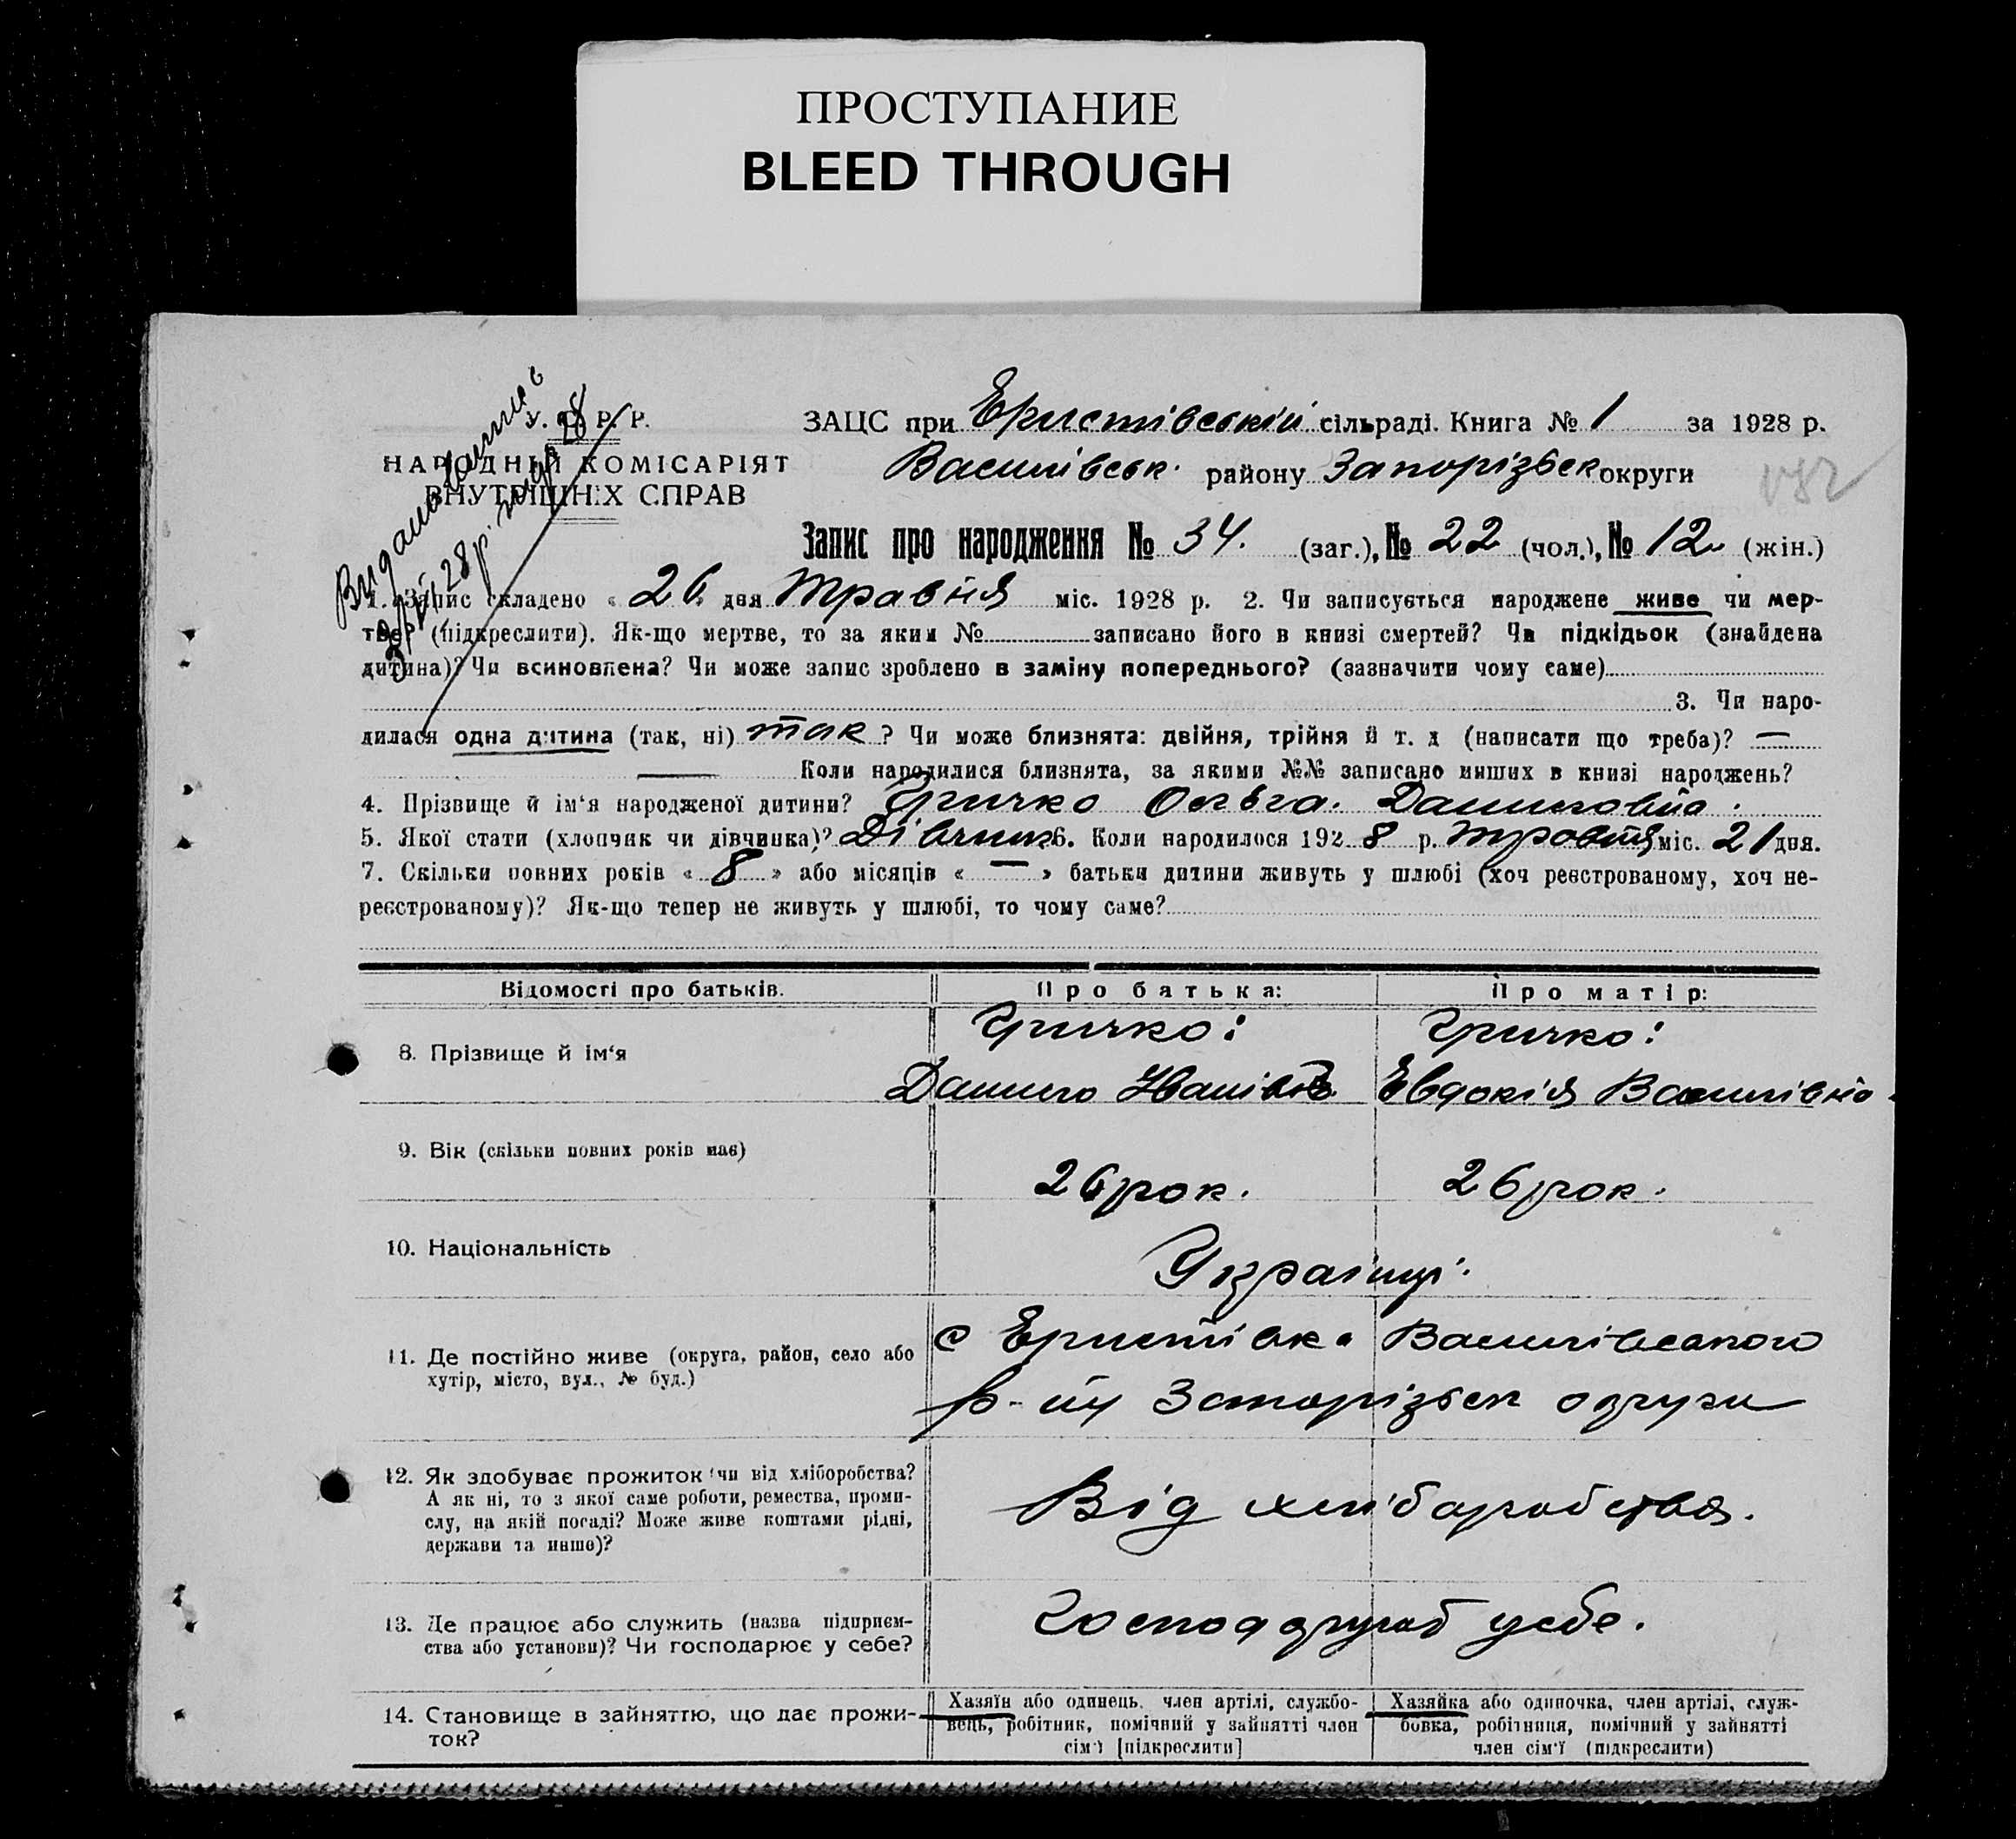 ПРОСТУПАНИЕ
BLEED THROUGH
У. С. Р. Р.
НАРОДНІЙ КОМІСАРІЯТ
ВНУТРІШНІХ СПРАВ
ЗАЦС при Еристівській сільраді. Книга № 1 за 1928 р.
Василівськ. району Запорізьск округи
Запис про народження № 34. (заг.), № 22 (чол.), № 12 (жін.)
1. Запис складено « 26 » дня Травня міс. 1928 р. 2. Чи записується народжене живе чи мер-
тве? (підкреслити). Як-що мертве, то за яким № записано його в книзі смертей? Чи підкідьок (знайдена
дитина)? Чи всиновлена? Чи може запис зроблено в заміну попереднього? (зазначити чому саме)
3. Чи наро-
дилася одна дитина (так, ні) так ? Чи може близнята: двійня, трійня й т. д (написати що треба)? —
— Коли народилися близнята, за якими №№ записано инших в книзі народжень?
4. Прізвище й ім'я народженої дитини? Гричко Ольга. Даниловна.
5. Якої стати (хлопчик чи дівчинка)? Дівчинк 6. Коли народилося 192 8 р. травня міс. 21 дня.
7. Скільки повних років « 8 » або місяців « — » батьки дитини живуть у шлюбі (хоч реєстрованому, хоч не-
реєстрованому)? Як-що тепер не живуть у шлюбі, то чому саме?
Відомості про батьків.
Про батька:
Про матір:
8. Прізвище й ім'я
Гричко:
Данило Іванів
Гричко:
Евдокія Василівна.
9. Вік (скільки повних років має)
26 рок.
26 рок.
10. Національність
Украінці.
11. Де постійно живе (округа, район, село або
хутір, місто, вул., № буд.)
с Еристівка Василівського
р-ну Запорізьск округи
12. Як здобуває прожиток (чи від хліборобства?
А як ні, то з якої саме роботи, ремества, проми-
слу, на якій посаді? Може живе коштами рідні,
держави та инше)?
Від хліборобства.
13. Де працює або служить (назва підприєм-
ства або установи)? Чи господарює у себе?
у себе.
14. Становище в зайняттю, що дає прожи-
ток?
Хазяїн або одинець, член артілі, службо-
вець, робітник, помічний у зайнятті член
сім'ї [підкреслити]
Хазяйка або одиночка, член артілі, служ-
бовка, робітниця, помічний у зайнятті
член сім'ї (підкреслити)